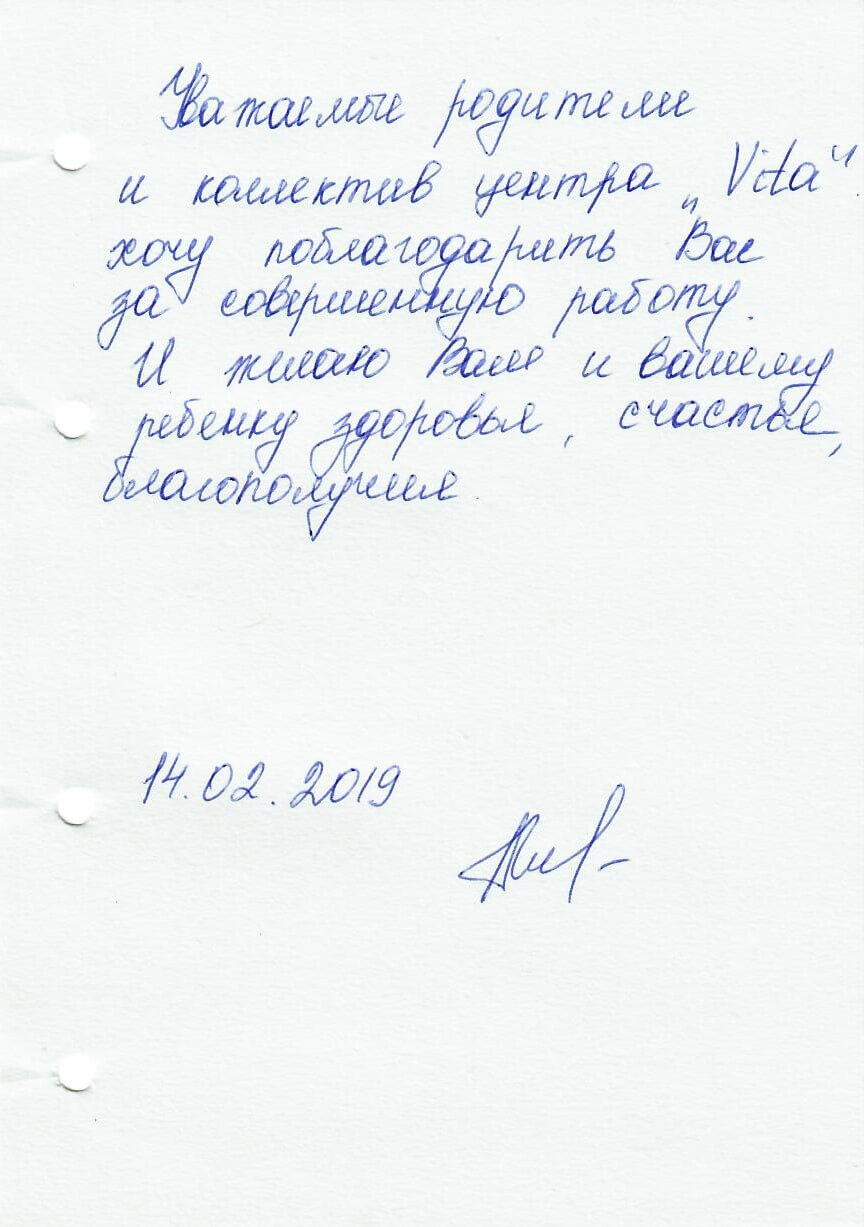 Уважаемые родители
и коллектив центра „Vita“.
хочу поблагодарить Вас
за совершенную работу.
И желаю Вам и вашему
ребенку здоровья, счастья,
благополучия.
14.02.2019